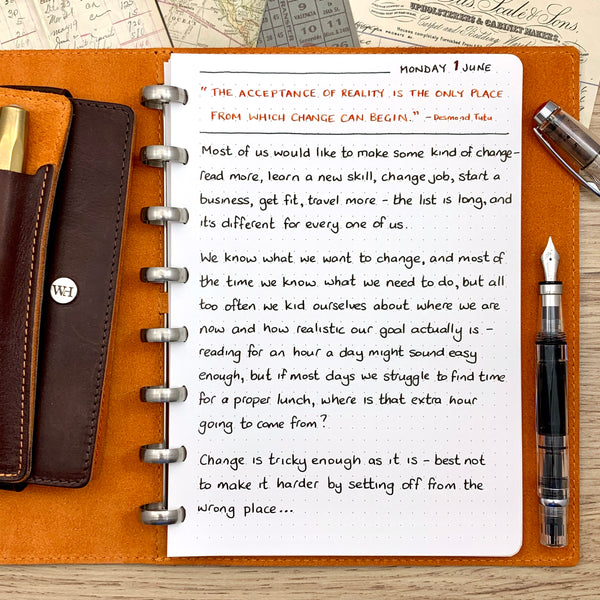 Scale & Sons.
UPHOLSTERERS & CABINET MAKERS.
MONDAY 1 JUNE
"THE ACCEPTANCE OF REALITY IS THE ONLY PLACE
FROM WHICH CHANGE CAN BEGIN." - Desmond Tutu.
Most of us would like to make some kind of change-
read more, learn a new skill, change job, start a
business, get fit, travel more - the list is long, and
it's different for every one of us.
We know what we want to change, and most of
the time we know what we need to do, but all
too often we kid ourselves about where we are
now and how realistic our goal actually is -
reading for an hour a day might sound easy
enough, but if most days we struggle to find time
for a proper lunch, where is that extra hour
going to come from?
Change is tricky enough as it is - best not
to make it harder by setting off from the
wrong place...
WH